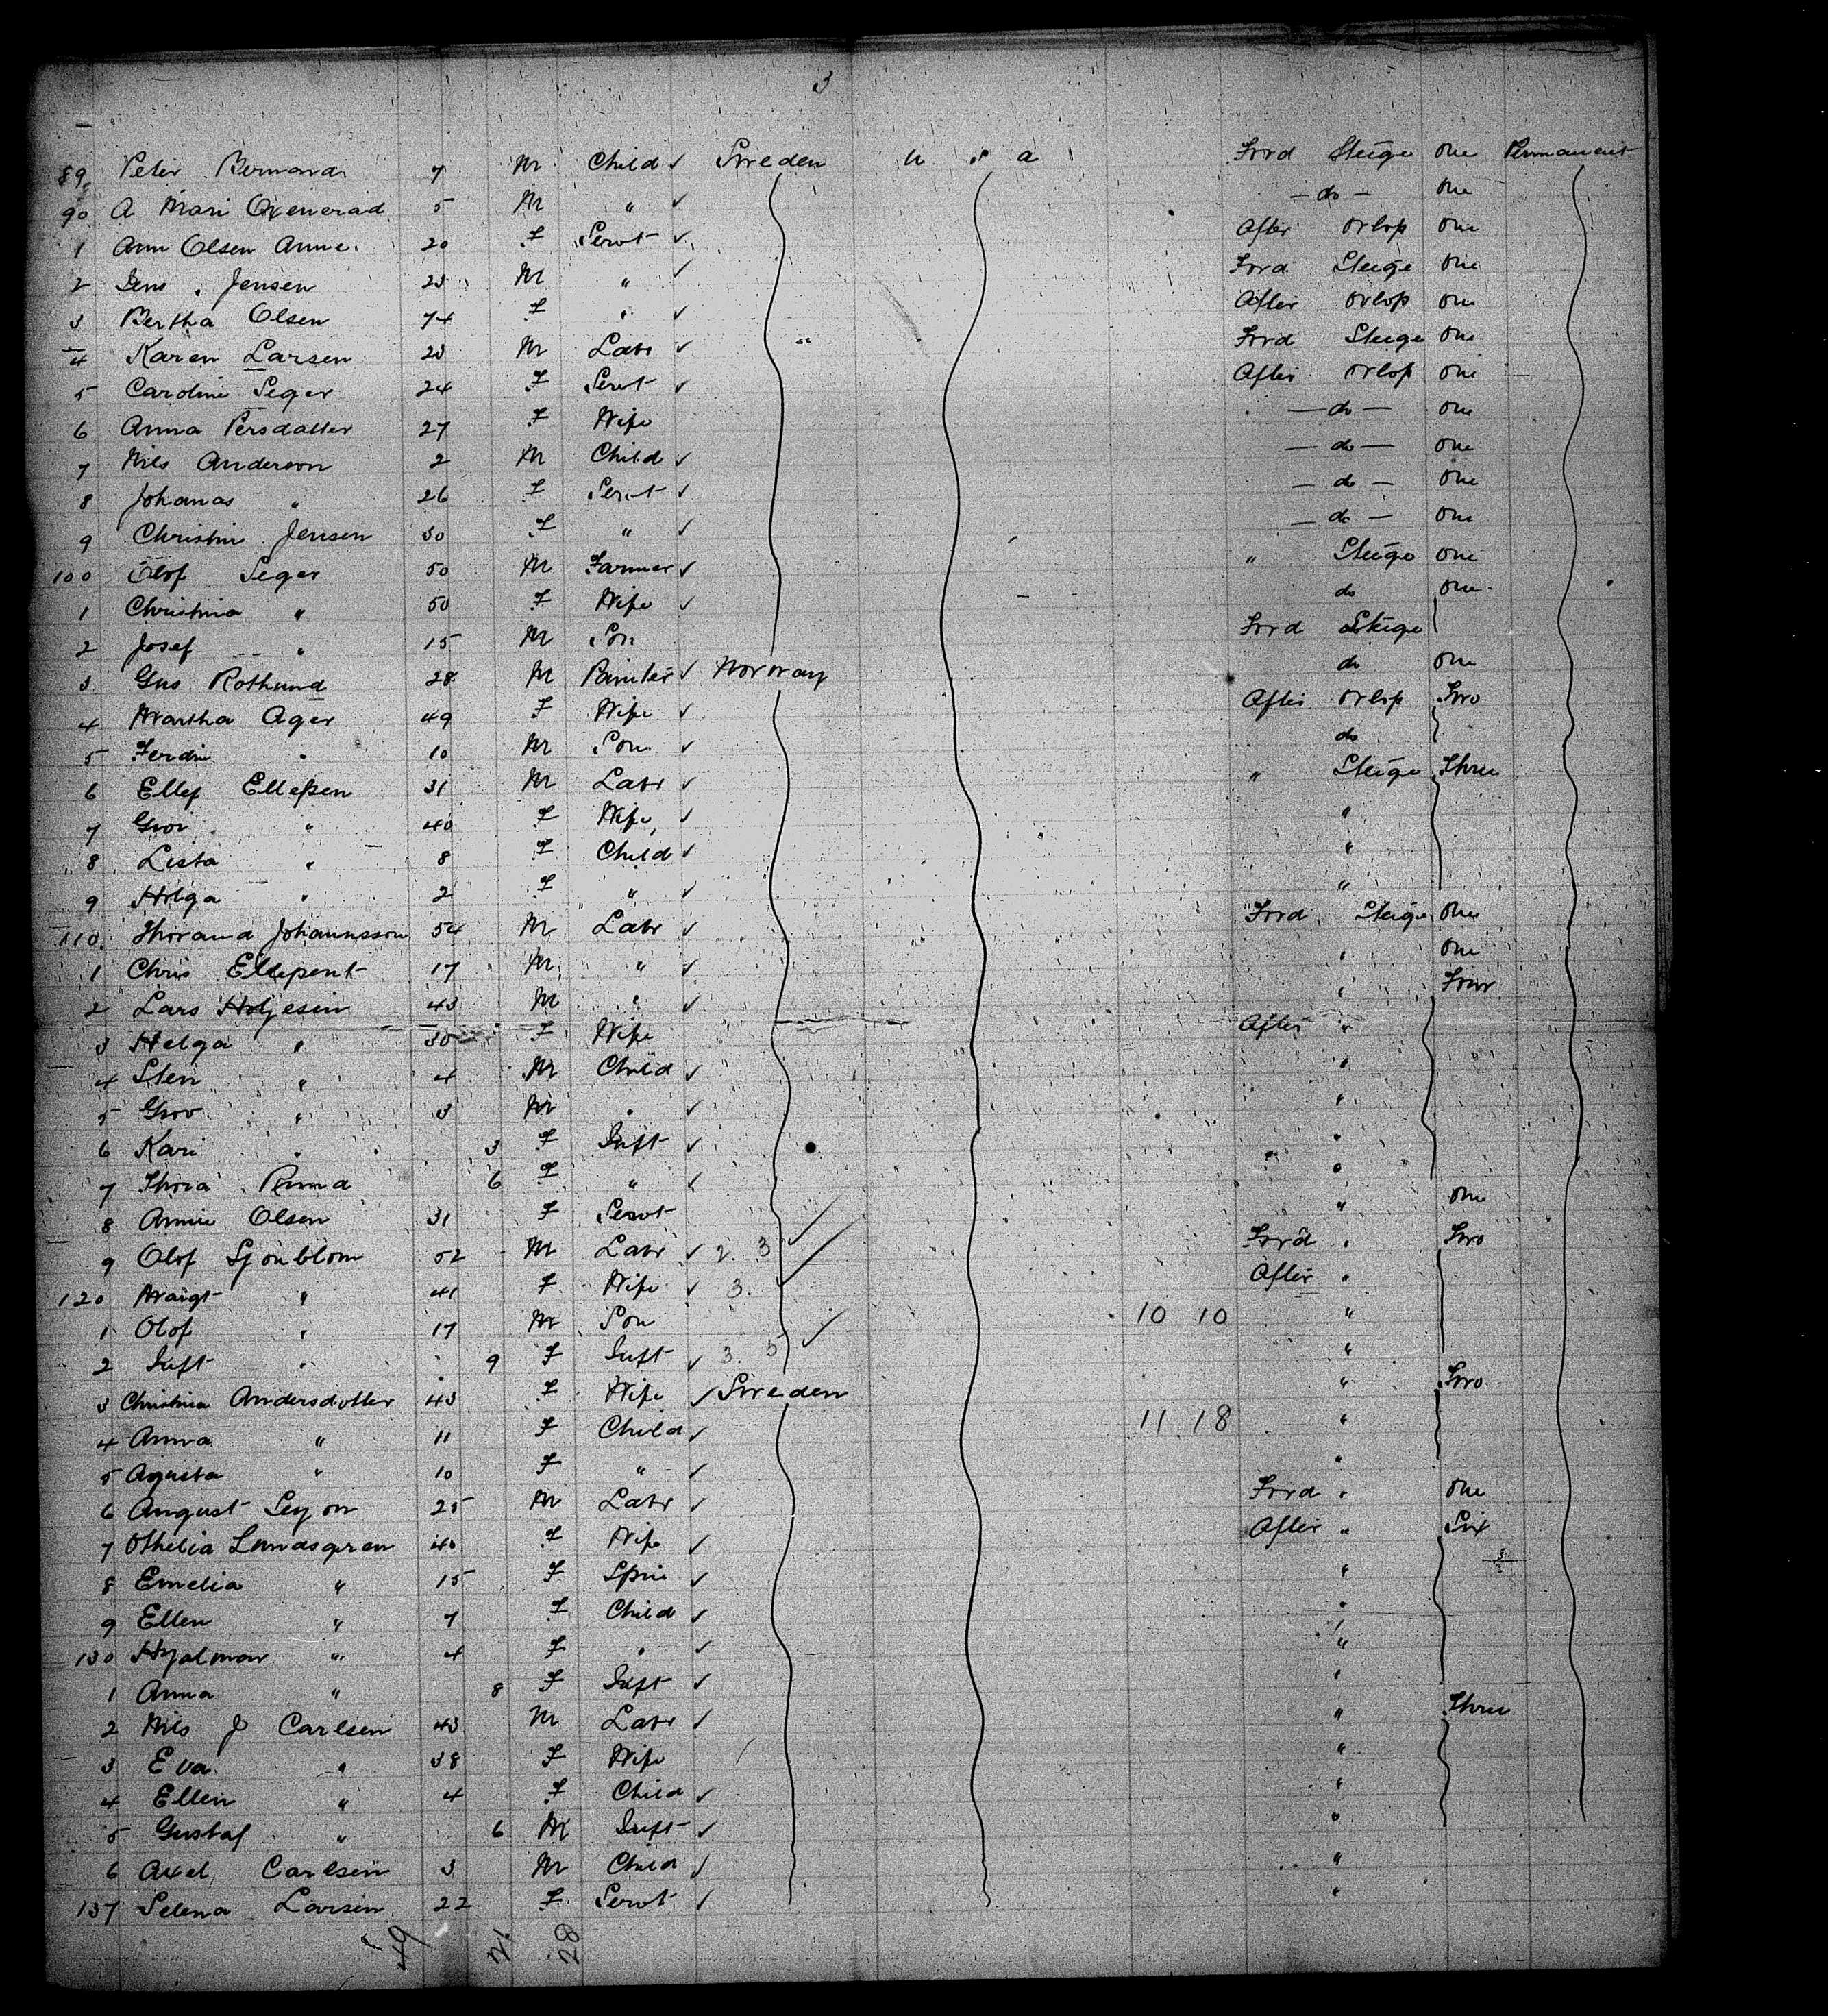 3
89 Peter Bernard 7 M Child ✓ Sweden U S A Ford Steige One Permanent
90 A Mari Oxenerad 5 M " ✓ — do — One
1 Ann Olsen Anne 20 F Servt ✓ After Orlop One
2 Jens Jensen 23 M " ✓ Ford Steige One
3 Bertha Olsen 74 F " ✓ After Orlop One
4 Karen Larsen 23 M Labr ✓ Ford Steige One
5 Caroline Seger 24 F Servt ✓ After Orlop One
6 Anna Persdatter 27 F Wife — do — One
7 Nils Anderson 2 M Child ✓ — do — One
8 Johanas " 26 F Servt ✓ — do — One
9 Christin Jensen 30 F " ✓ — do — One
100 Olof Seger 50 M Farmer ✓ " Steige One
1 Christina " 50 F Wife ✓ do One
2 Josef " 15 M Son Ford Steige
3 Gus Rothund 28 M Painter ✓ Norway do One
4 Martha Ager 49 F Wife ✓ After Orlop Two
5 Ferdin " 10 M Son ✓ do
6 Ellef Ellefsen 31 M Labr ✓ " Steige Three
7 Groi " 40 F Wife ✓ "
8 Lista " 8 F Child ✓ "
9 Helga " 2 F " ✓ "
110 Thorand Johannsson 54 M Labr ✓ Ford Steige One
1 Chris Ellepent 17 M " ✓ " One
2 Lars Holjesin 43 M " ✓ " Four
3 Helga " 30 F Wife After "
4 Sten " 4 M Child ✓ "
5 Grov " 3 M " ✓ "
6 Kari " 3 F Inft ✓ "
7 Thora 6 F " ✓ "
8 Annie Olsen 31 F Servt " One
9 Olof Sjonblom 52 M Labr ✓ 2. 3 ✓ Ford " Two
120 " 41 F Wife ✓ 3. ✓ After "
1 Olof " 17 M Son 10 10 "
2 Inft " 9 F Inft ✓ 3. 5 ✓ "
3 Christina Andersdotter 43 F Wife ✓ Sweden " Two
4 Anna " 11 F Child ✓ 11 18 "
5 Agusta " 10 F " ✓ "
6 August Leyon 25 M Labr ✓ Ford " One
7 Othelia Lundsgren 40 F Wife ✓ After " Six
8 Emelia " 15 F Spin ✓ "
9 Ellen " 7 F Child ✓ "
130 Hjalmar " 4 F " ✓ "
1 Anna " 8 F Inft ✓ "
2 Nils J Carlsen 43 M Labr ✓ " Three
3 Eva " 38 F Wife "
4 Ellen " 4 F Child ✓ "
5 Gustaf " 6 M Inft ✓ "
6 Axel Carlsen 3 M Child ✓ "
137 Selena Larsen 22 F Servt ✓ "
49 21 28